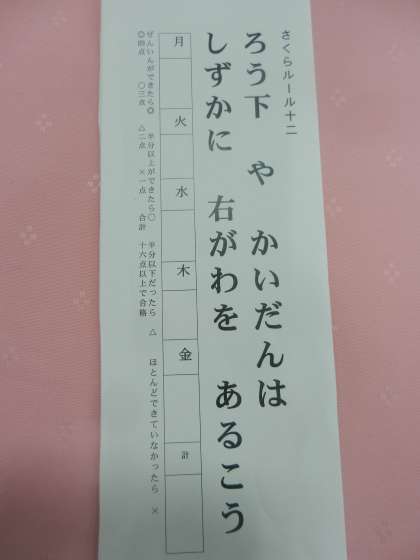 さくらルール十二
ろう下 や かいだんは
しずかに 右がわを あるこう
月 火 水 木 金 計
ぜんいんができたら◎ 半分以上ができたら○ 半分以下だったら △ ほとんどできていなかったら ×
◎四点 ○三点 △二点 ×一点 合計 十六点以上で合格